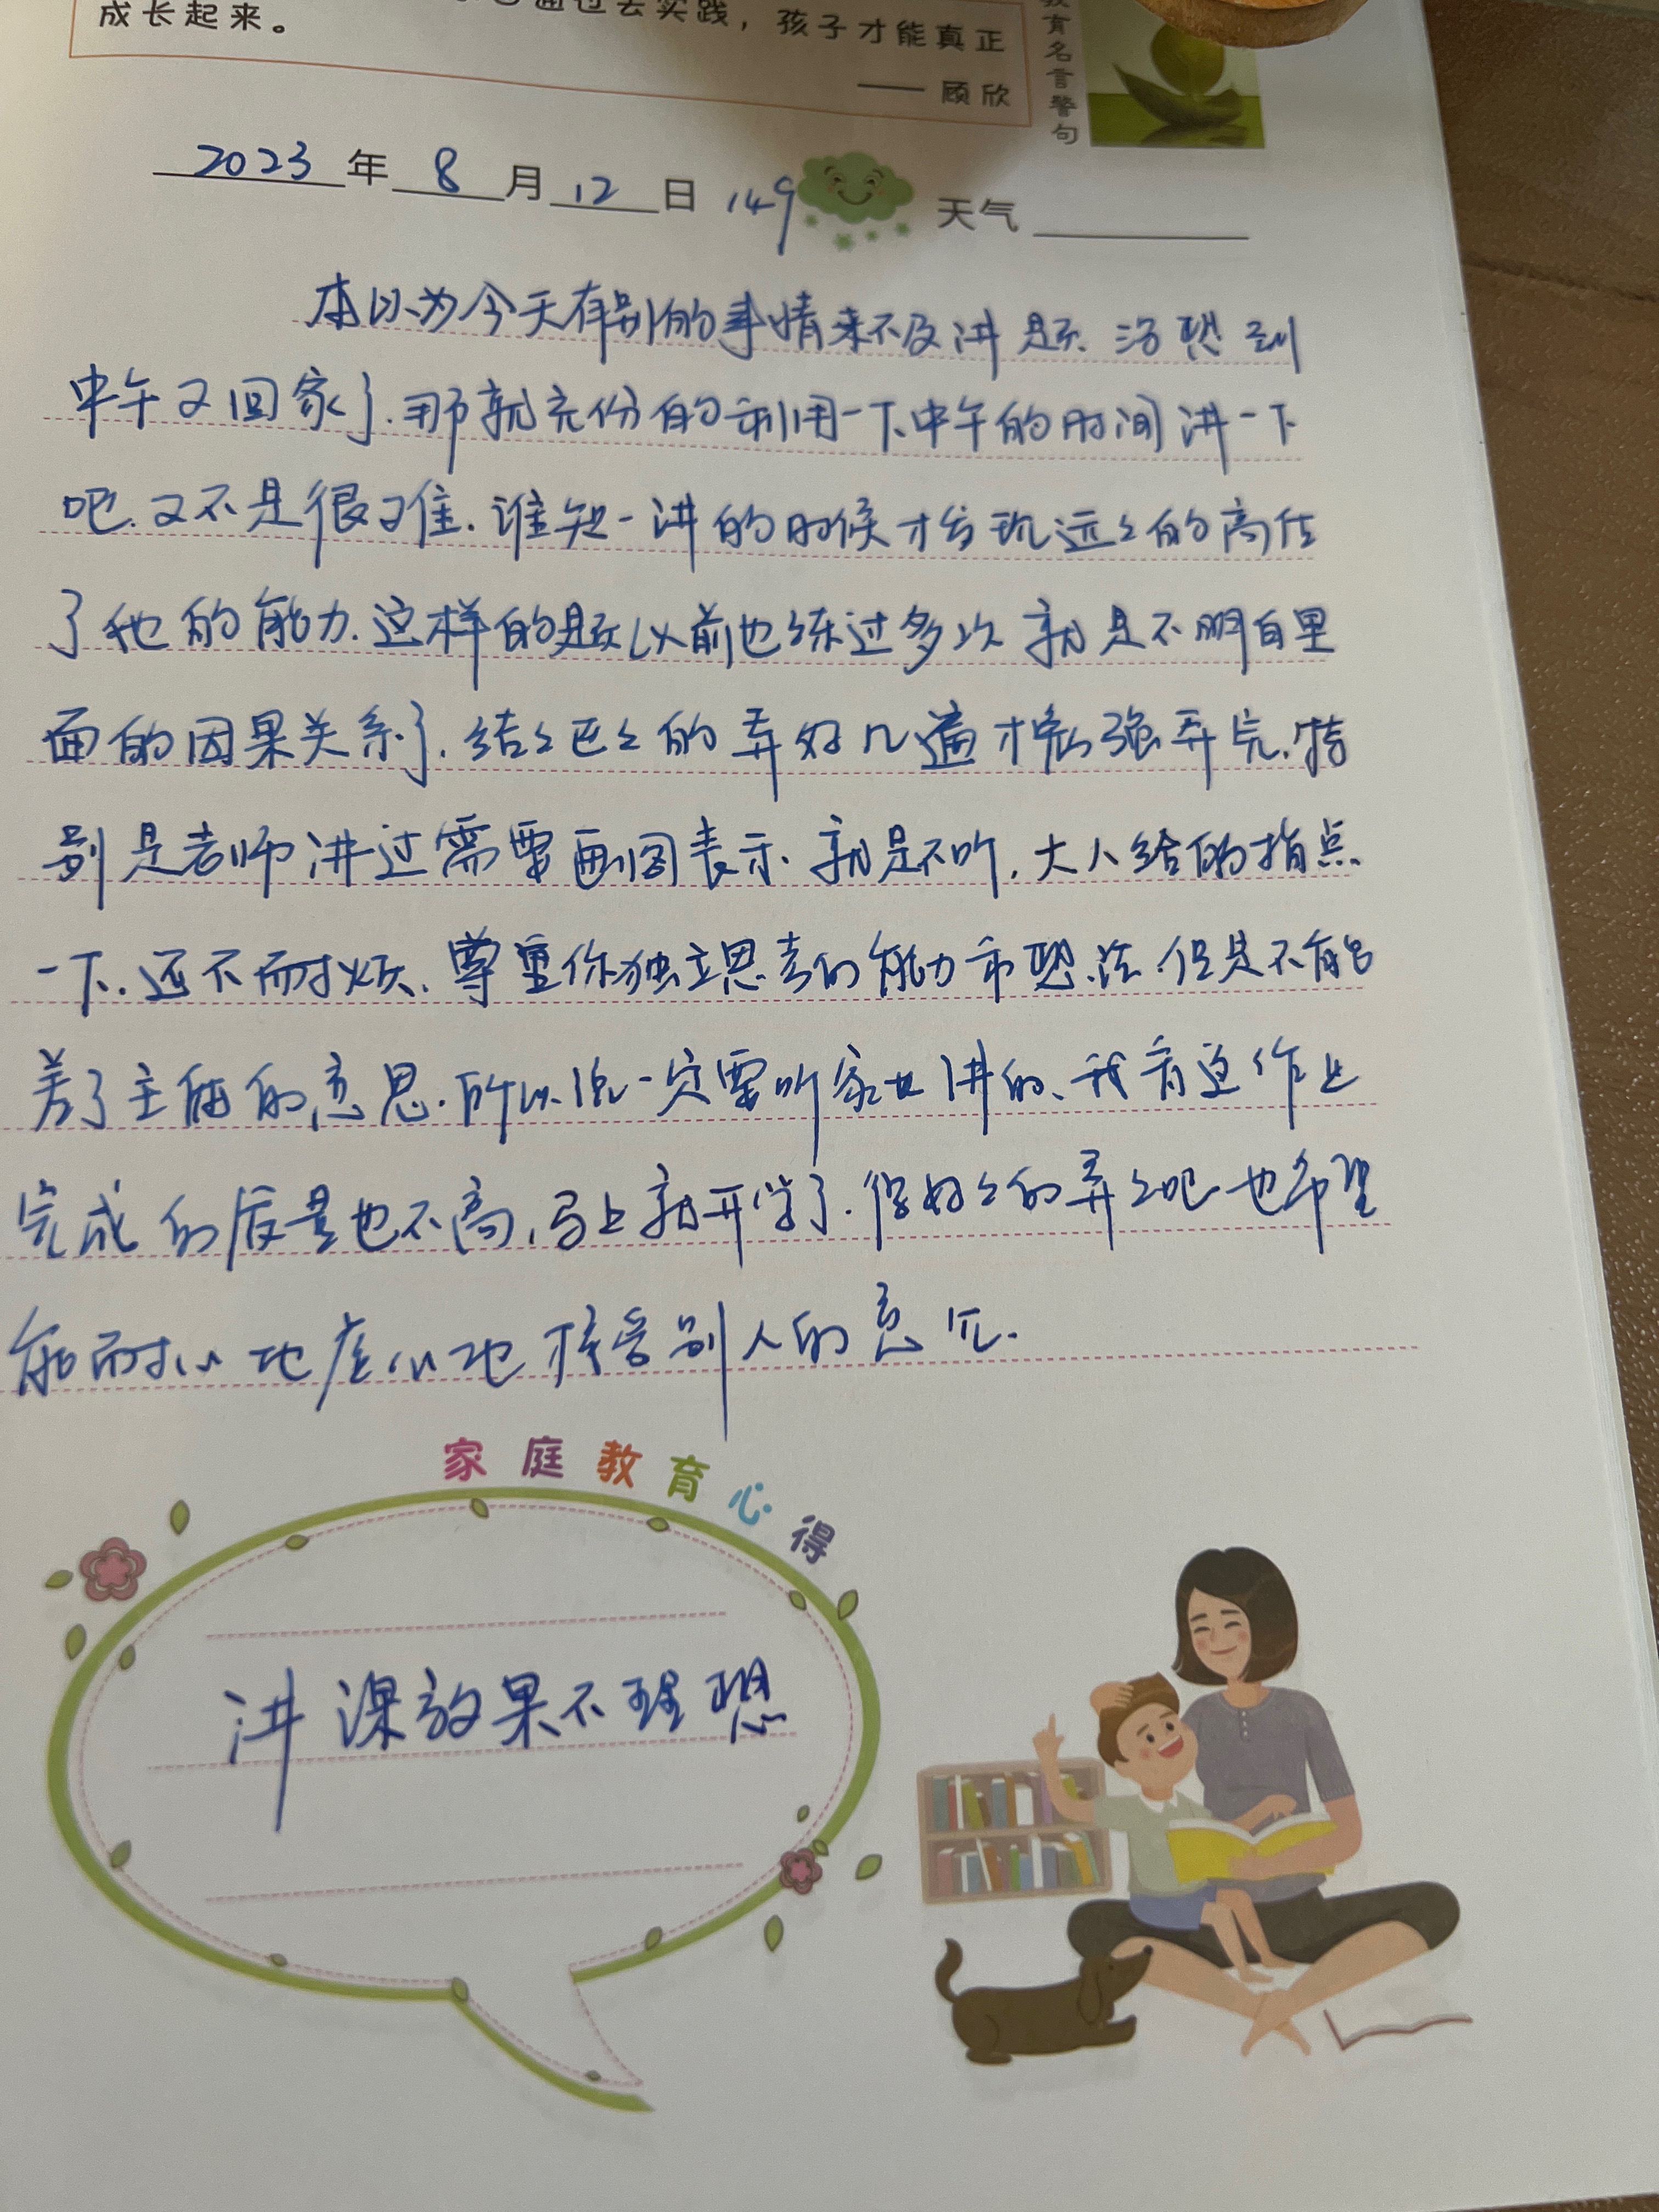 通过去实践，孩子才能真正
成长起来。
—— 顾欣
教育名言警句
2023年8月12日 149 天气
本以为今天有别的事情来不及讲题.没想到
中午又回家了.那就充份的利用一下中午的时间讲一下
吧.又不是很难.谁知一讲的时候才发现远远的高估
了他的能力.这样的题以前也练过多次就是不明白里
面的因果关系了.结结巴巴的弄好几遍才勉强弄完.特
别是老师讲过需要画图表示.就是不听.大人给的指点
一下.还不耐烦.尊重你独立思考的能力和想法.但是不能
差了主的意思.所以说一定要听家长讲的、我看这作业
完成的质量也不高,马上就开学了.你好好的弄弄吧也希望
能耐心地虚心地接受别人的意见.
家庭教育心得
讲课效果不理想